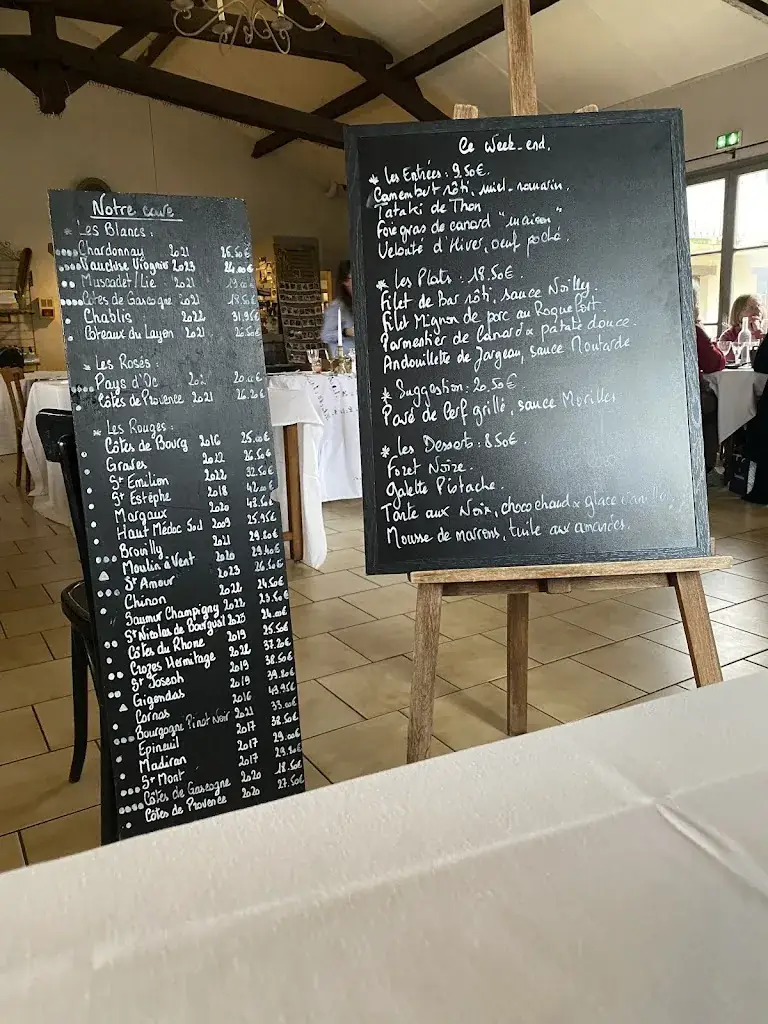 Notre cave
* Les Blancs :
Chardonnay 2021 25.50€
Vaucluse Viognier 2023 24.00€
Muscadet/Lie 2021 19.00€
Côtes de Gascogne 2021 18.50€
Chablis 2022 31.95€
Coteaux du Layon 2021 26.50€
* Les Rosés
Pays d'Oc 2021 20.00€
Côtes de Provence 2021 26.20€
* Les Rouges :
Côtes de Bourg 2016 25.00€
Graves 2022 26.50€
St Emilion 2022 32.50€
St Estèphe 2018 42.00€
Margaux 2020 43.50€
Haut Médoc Sud 2009 25.95€
Brouilly 2021 29.80€
Moulin à Vent 2020 29.40€
St Amour 2023 26.50€
Chinon 2022 24.50€
Saumur Champigny 2022 23.50€
St Nicolas de Bourgueil 2023 24.00€
Côtes du Rhone 2019 25.50€
Crozes Hermitage 2022 37.20€
St Joseph 2019 38.50€
Gigondas 2019 39.80€
Cornas 2016 49.95€
Bourgogne Pinot Noir 2021 33.00€
Epineuil 2017 38.50€
Madiran 2017 29.00€
St Mont 2020 29.80€
Côtes de Gascogne 2020 18.50€
Côtes de Provence 2020 27.50€
Ce week-end.
* Les Entrées : 9.50€.
Camembert rôti, miel-romarin.
Tataki de Thon
Foie gras de canard "maison"
Velouté d'Hiver, oeuf poché.
* Les Plats : 18.50€.
Filet de Bar rôti, sauce Noilly.
Filet Mignon de porc au Roquefort.
Parmentier de Canard & patate douce.
Andouillette de Jargeau, sauce Moutarde
* Suggestion : 20.50€
Pavé de Cerf grillé, sauce Morilles
* Les Desserts : 8.50€.
Fozet Noize.
Galette Pistache.
Tarte aux Noix, choco chaud & glace vanille
Mousse de marrons, tuile aux amandes.